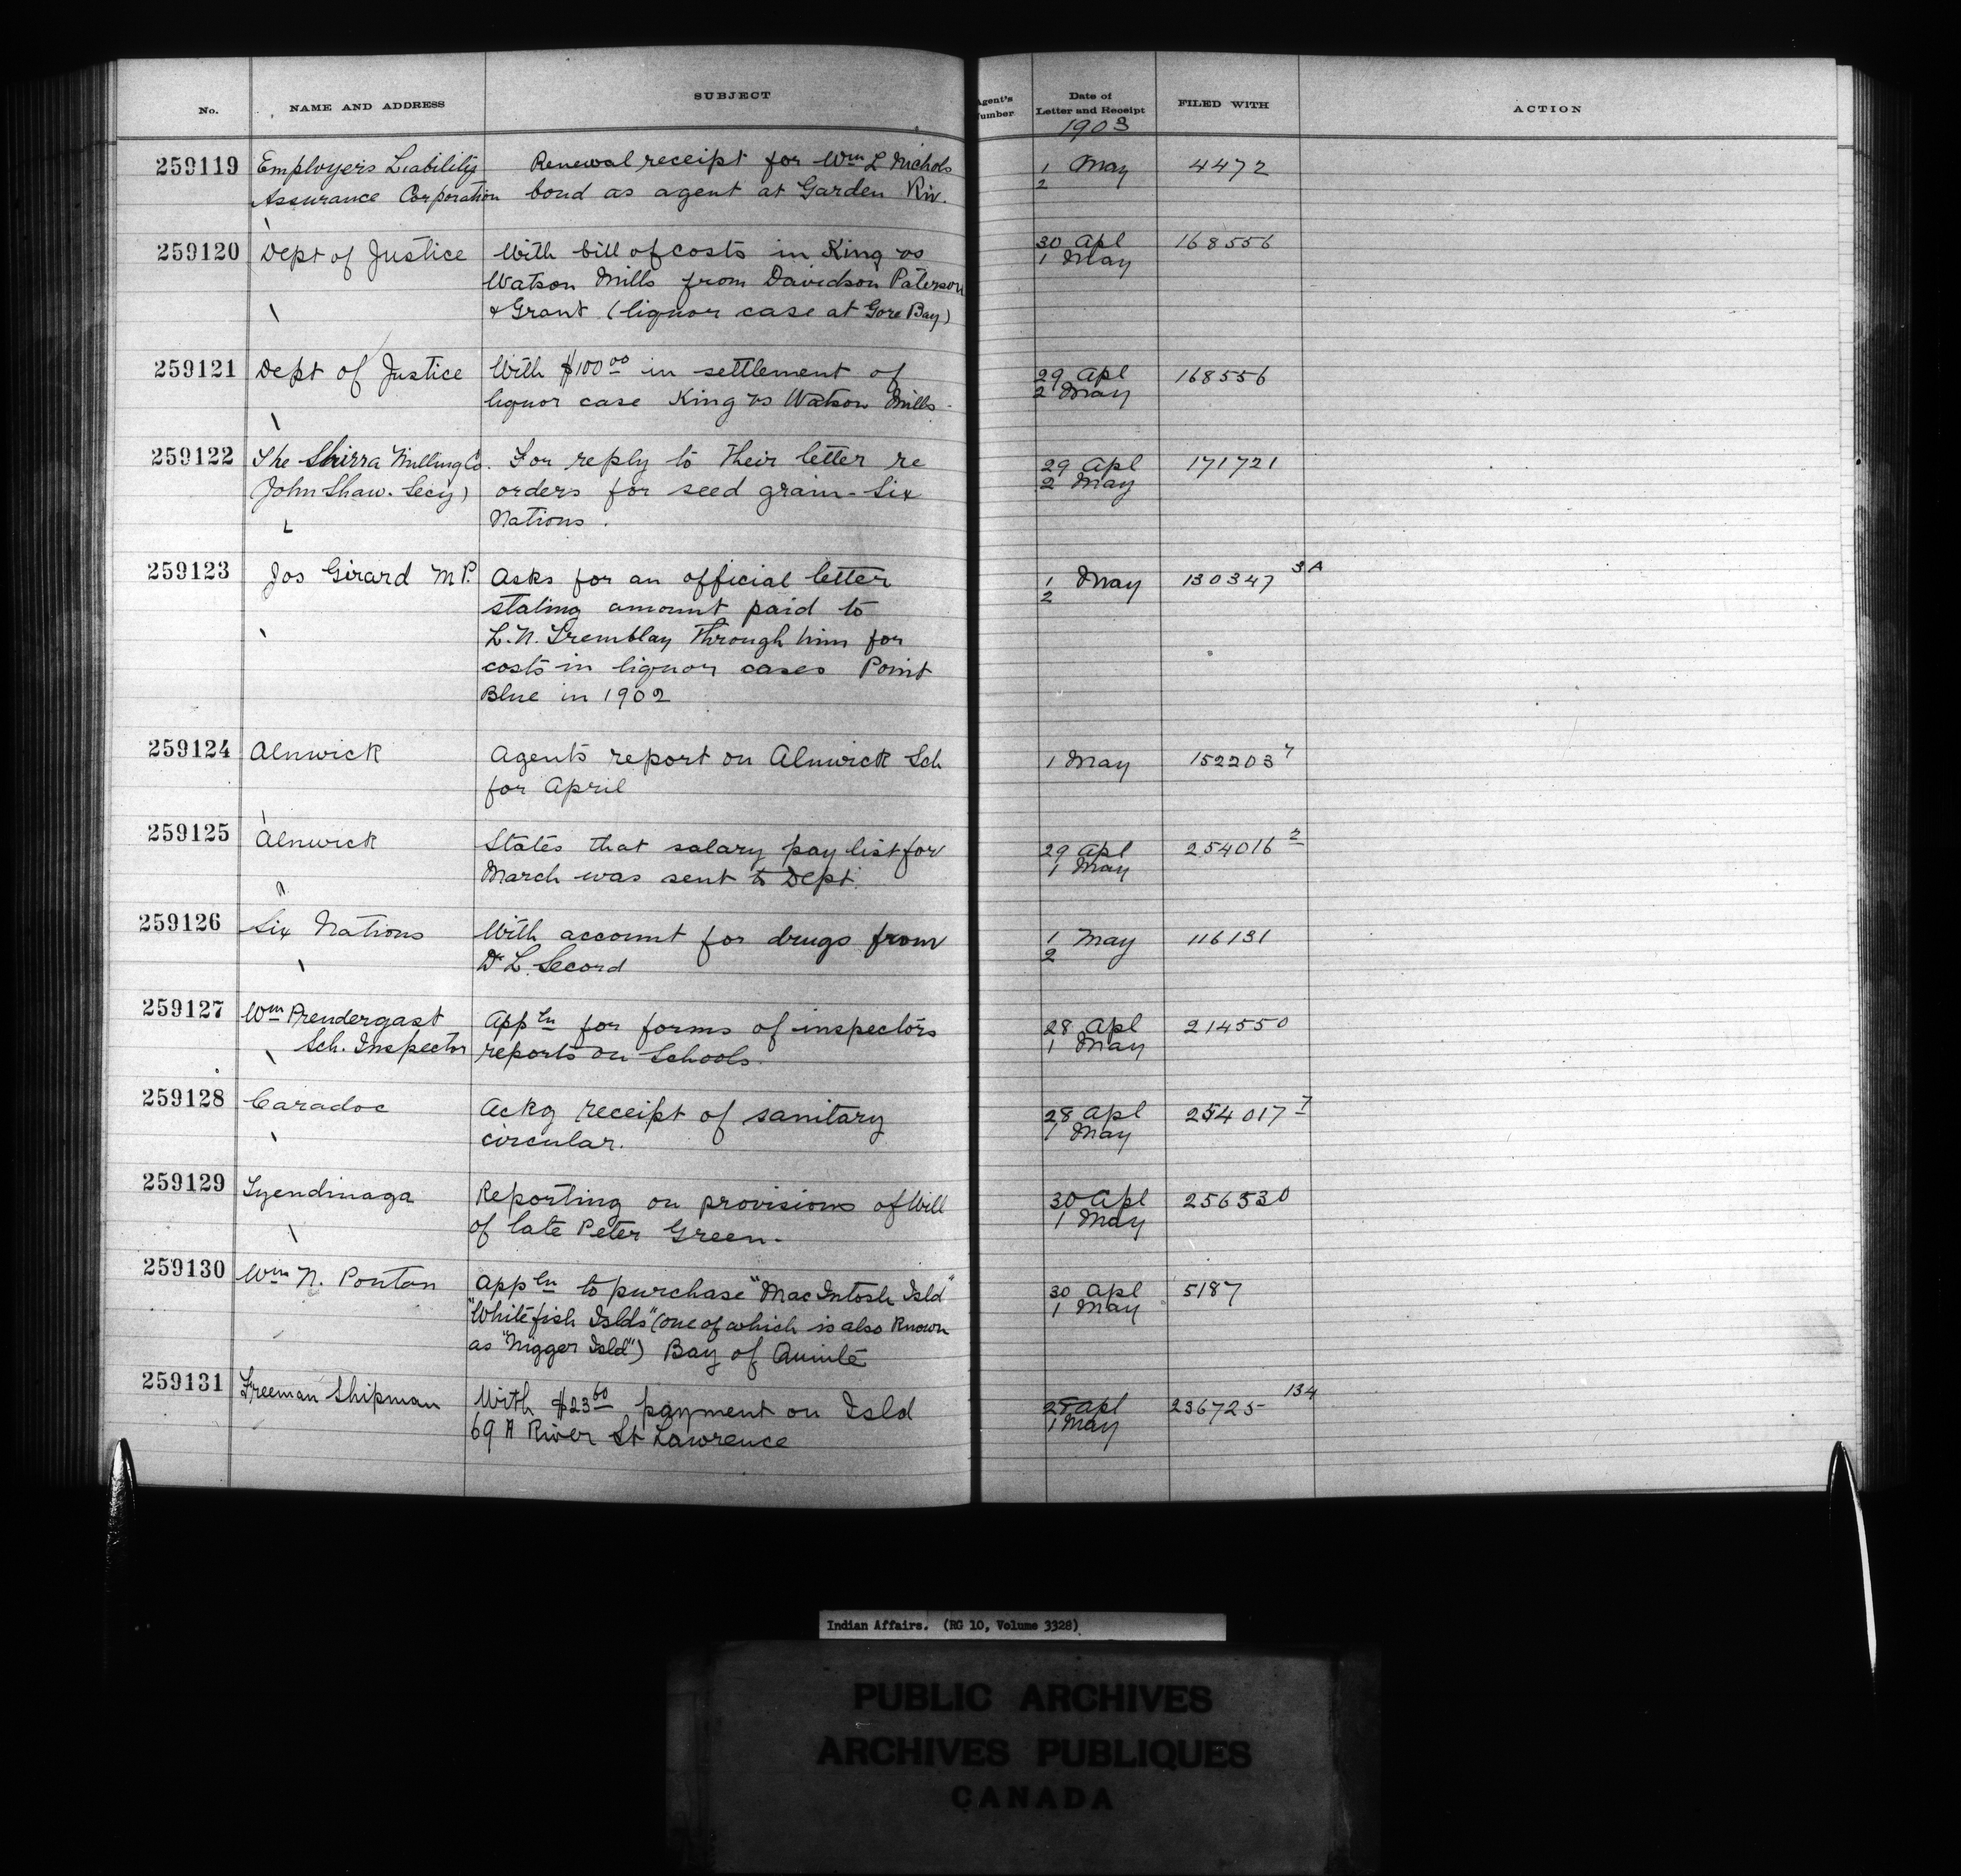 No. NAME AND ADDRESS SUBJECT Agent's Number Date of Letter and Receipt FILED WITH ACTION
1903
259119 Employers Liability Renewal receipt for Wm L Nichols 1 May 4472
Assurance Corporation bond as agent at Garden Riv. 2
259120 Dept of Justice With bill of costs in King vs 30 Apl 168556
Watson Mills from Davidson Paterson 1 May
& Grant (liquor case at Gore Bay)
259121 Dept of Justice With $100 00 in settlement of 29 Apl 168556
liquor case King vs Watson Mills 2 May
259122 The Shirra Milling Co. For reply to their letter re 29 Apl 171721
John Shaw. Secy) orders for seed grain - Six 2 May
Nations.
259123 Jos Girard M P. Asks for an official letter 1 May 130347 3A
stating amount paid to 2
L. N. Tremblay through him for
costs in liquor cases Point
Blue in 1902
259124 Alnwick Agents report on Alnwick Sch 1 May 152203 7
for April
259125 Alnwick States that salary pay list for 29 Apl 254016 2
March was sent to Dept. 1 May
259126 Six Nations With account for drugs from 1 May 116131
Dr L. Secord 2
259127 Wm Prendergast Appln for forms of inspectors 28 Apl 214550
Sch. Inspector reports on Schools. 1 May
259128 Caradoc Ackg receipt of sanitary 28 Apl 254017 7
circular. 1 May
259129 Tyendinaga Reporting on provisions of Will 30 Apl 256530
of late Peter Green. 1 May
259130 Wm N. Ponton Appln to purchase "MacIntosh Isld" 30 Apl 5187
"Whitefish Islds" (one of which is also known 1 May
as "Nigger Isld") Bay of Quinte
259131 Freeman Shipman With $23 60 payment on Isld Apl 236725 134
69 A River St Lawrence 1 May
Indian Affairs. (RG 10, Volume 3328)
PUBLIC ARCHIVES
ARCHIVES PUBLIQUES
CANADA